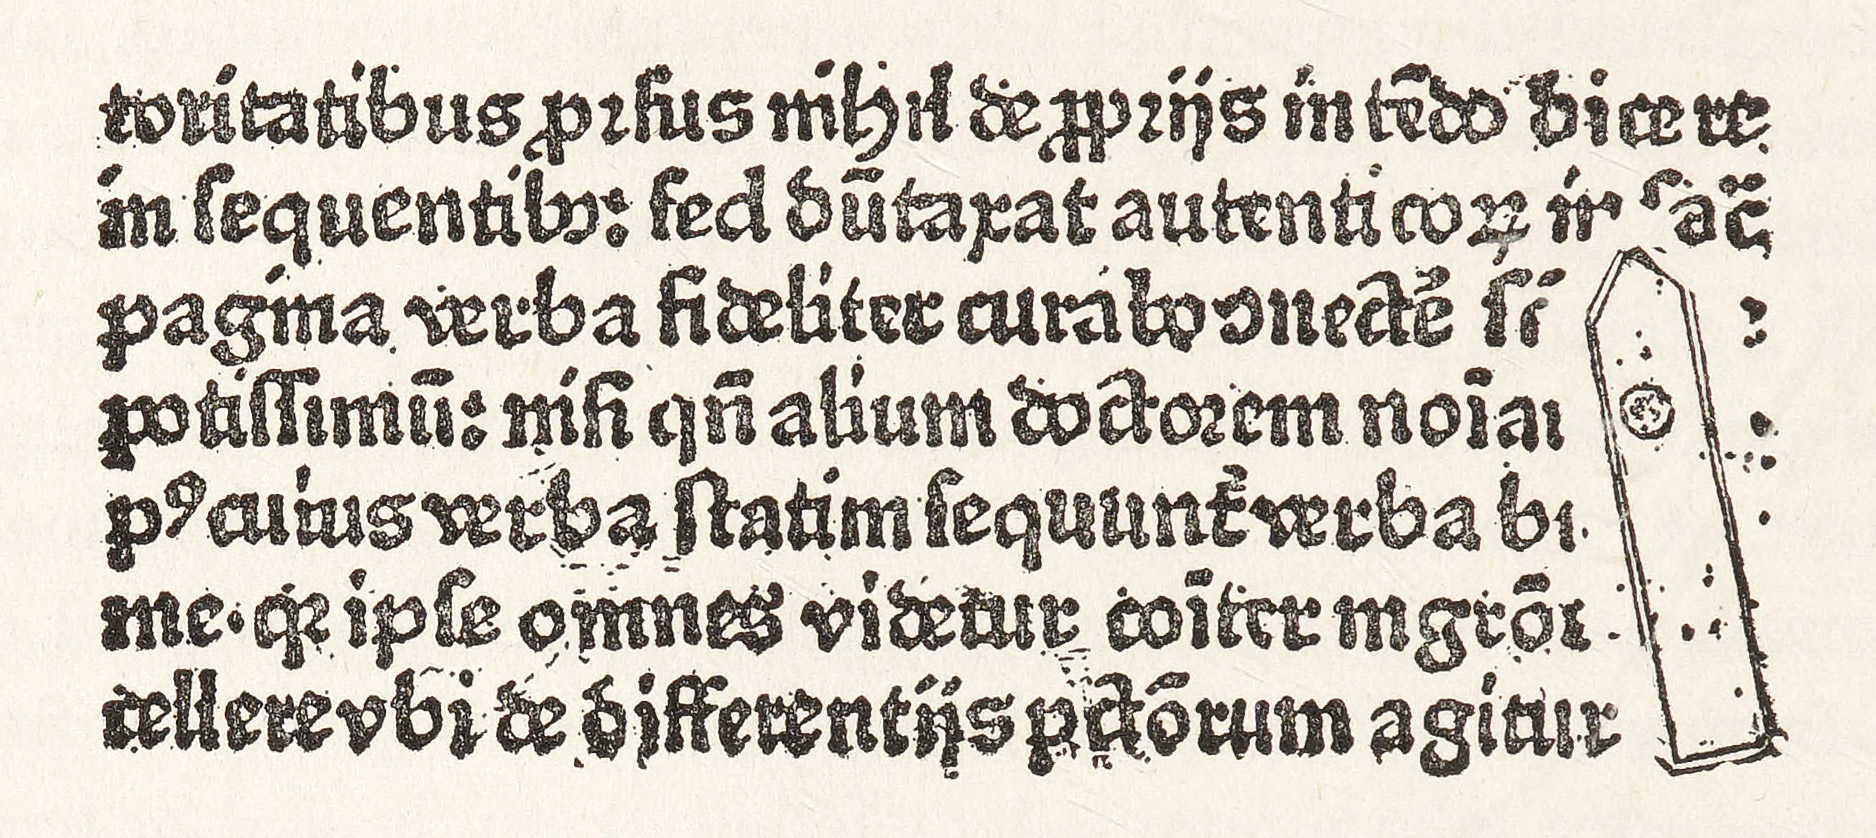 toritatibus prſus nihil de ꝓprijs intēdo dicere
in ſequentibꝫ: ſed dūtaxat autenticoꝝ in ſac̄
pagina verba fideliter curabo ꝯnectē ſi
potiſſimū: niſi qn̄ alium doctorem noīaı
pꝰ cuius verba ſtatim ſequunt᷑ verba bı
me. qꝛ ipſe omnes videtur coīter in grōı
cellere vbi de differentijs pctōrum agitur